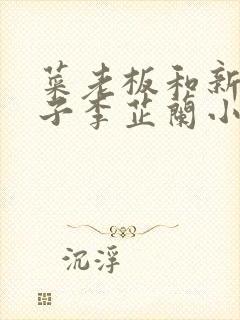 菜老板和新
子李芷蘭小
沉浮